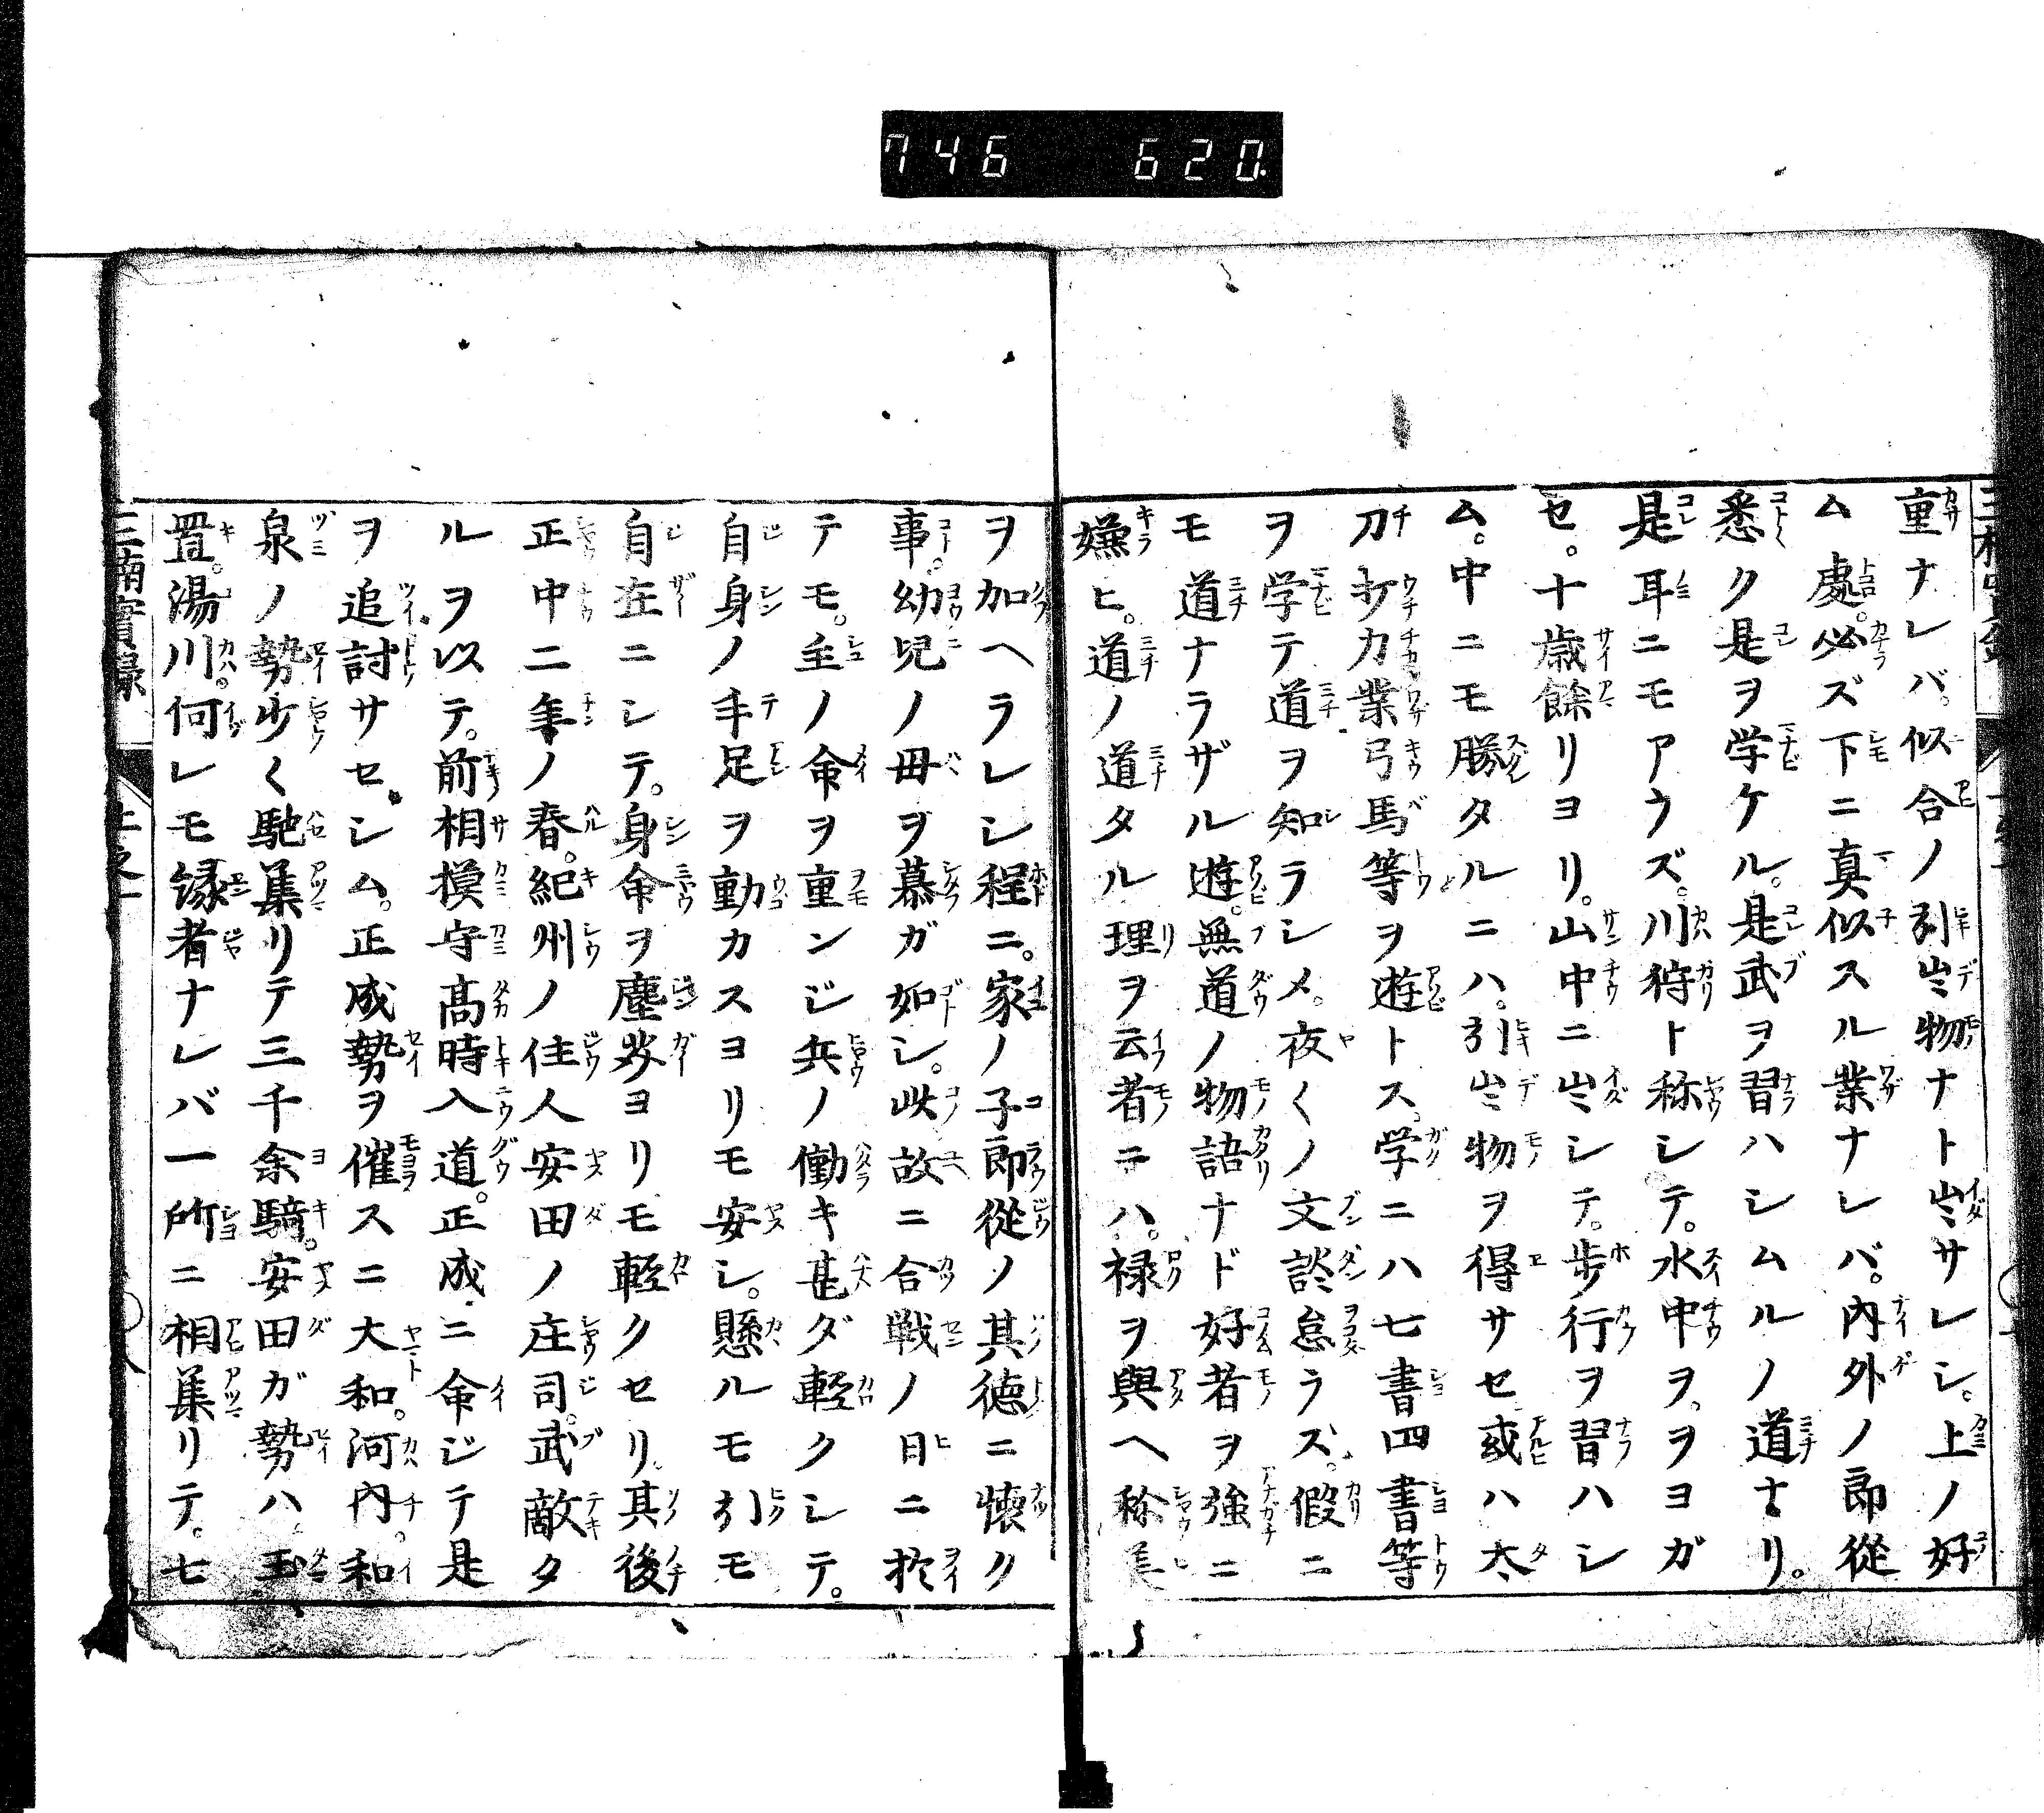 746 620.
重ナレバ。似合ノ引出物ナト出サレシ。上ノ好
ム處。必ズ下ニ真似スル業ナレバ。内外ノ郎從
悉ク是ヲ学ケル。是武ヲ習ハシムルノ道ナリ。
是耳ニモアウズ。川狩ト称シテ。水中ヲ。ヲヨガ
セ。十歳餘リヨリ。山中ニ出シテ。歩行ヲ習ハシ
ム。中ニモ勝タルニハ。引出物ヲ得サセ或ハ太
刀打力業弓馬等ヲ遊トス。学ニハ七書四書等
ヲ学テ道ヲ知ラシメ。夜〱ノ文談怠ラズ。假ニ
モ道ナラザル遊。無道ノ物語ナド好者ヲ強ニ
嫌ヒ。道ノ道タル理ヲ云者ニハ。禄ヲ與ヘ称美
ヲ加ヘラレシ程ニ。家ノ子郎從ノ其徳ニ懐ク
事。幼児ノ毋ヲ慕ガ如シ。此故ニ合戦ノ日ニ於
テモ。主ノ命ヲ重ンジ兵ノ働キ甚ダ軽クシテ。
自身ノ手足ヲ動カスヨリモ安シ。懸ルモ引モ
自在ニシテ。身命ヲ塵芥ヨリモ軽クセリ。其後
正中二年ノ春。紀州ノ住人安田ノ庄司。武敵タ
ルヲ以テ。前相模守高時入道。正成ニ命ジテ是
ヲ追討サセシム。正成勢ヲ催スニ大和。河内。和
泉ノ勢少〱馳集リテ三千余騎。安田ガ勢ハ玉
置。湯川。何レモ縁者ナレバ一所ニ相集リテ。七
三楠實録 上之一 八